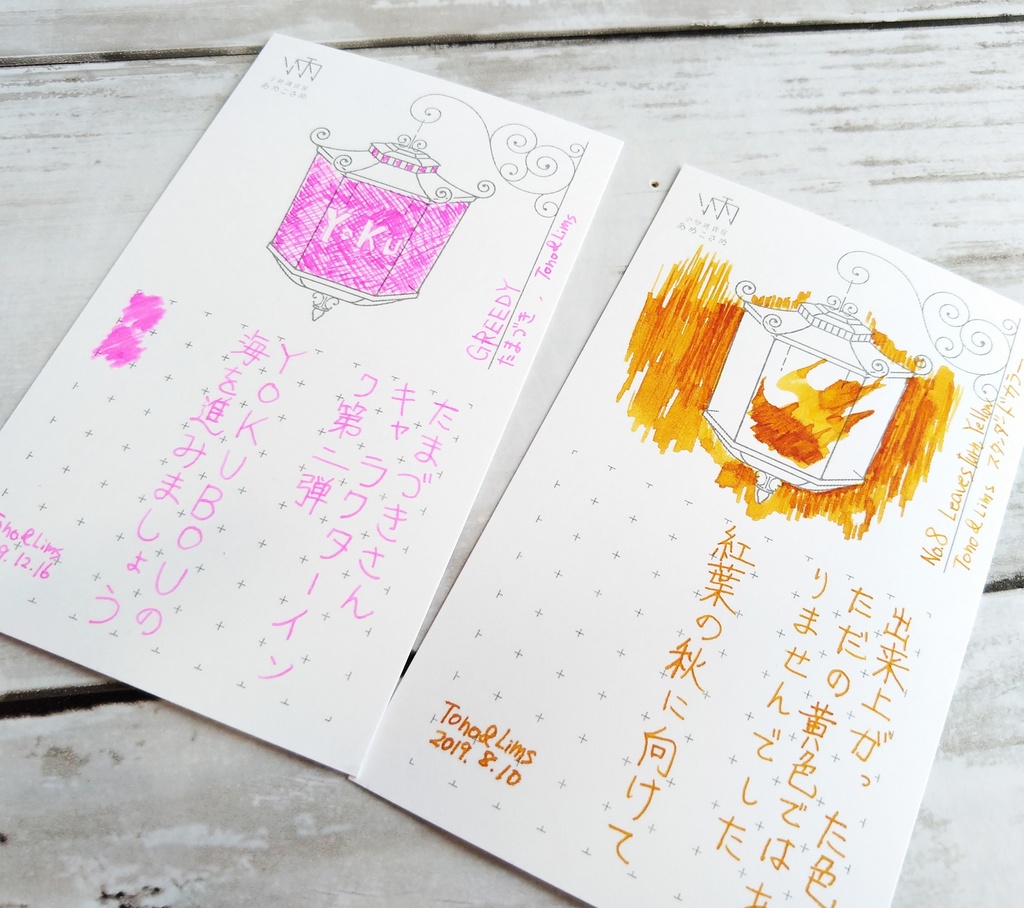 あめこさめ
YoKu
GREEDY
たまづき、Tono&Lims
たまづきさん
キャラクターイン
ク第二弾
YOKUBOUの
海を進みましょう
Tono&Lims
9.12.16
小砂雑貨店
あめこさめ
No.8 Leaves Turn Yellow
Tono&Lims スタンダードカラー
出来上がった色
ただの黄色ではあ
りませんでした
紅葉の秋に向けて
Tono&Lims
2019.8.10